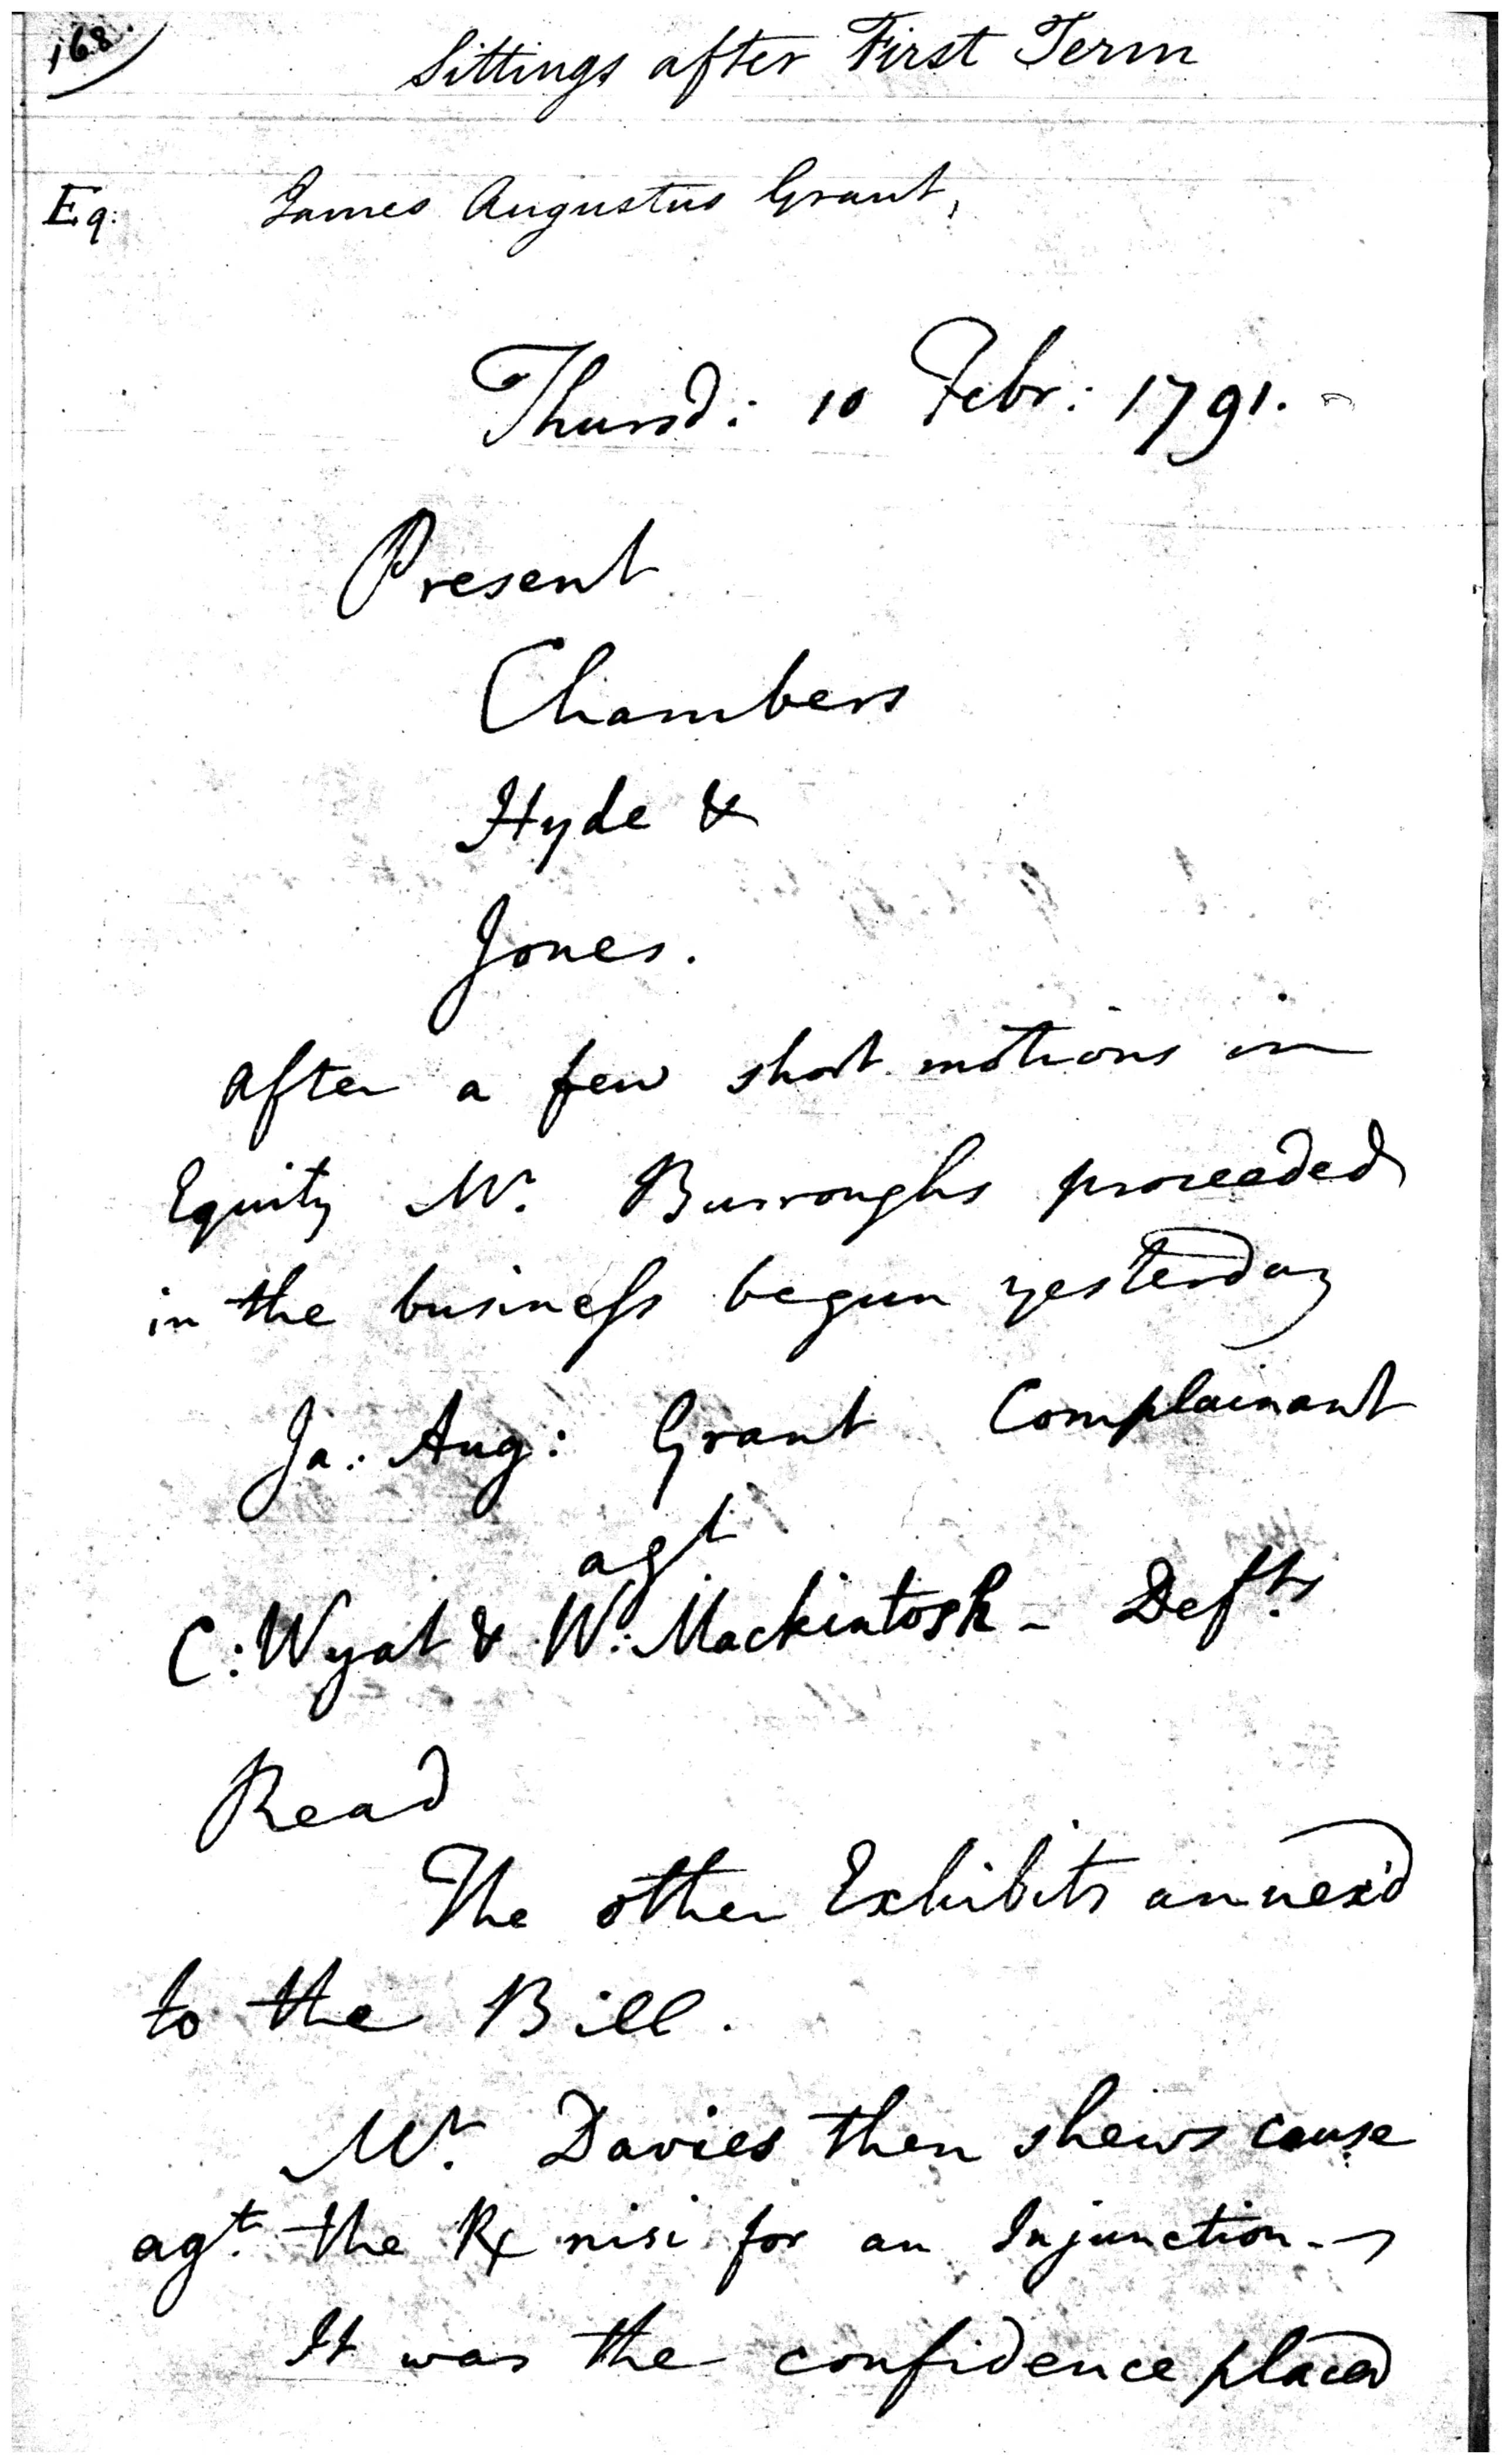 168.
Sittings after First Term
Eq: James Augustus Grant,
Thursd: 10 Febr: 1791.
Present
Chambers
Hyde &
Jones.
After a few short motions in
Equity Mr. Burroughs proceeded
in the business begun yesterday
Ja: Aug: Grant Complainant
agt
C: Wyat & W: Mackintosh - Defts.
Read
The other Exhibits annex'd
to the Bill.
Mr. Davies then shews cause
agt. the R nisi for an Injunction -
It was the confidence placed